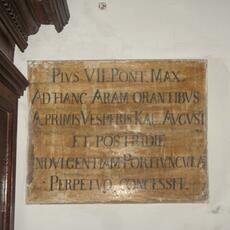 PIVS VII. PONT. MAX.
AD HANC ARAM ORANTIBVS
A PRIMIS VESPERIS KAL. AVGVSTI
ET POSTRIDIE
INDVLGENTIAM PORTIVNCVLÆ
PERPETVO CONCESSIT.